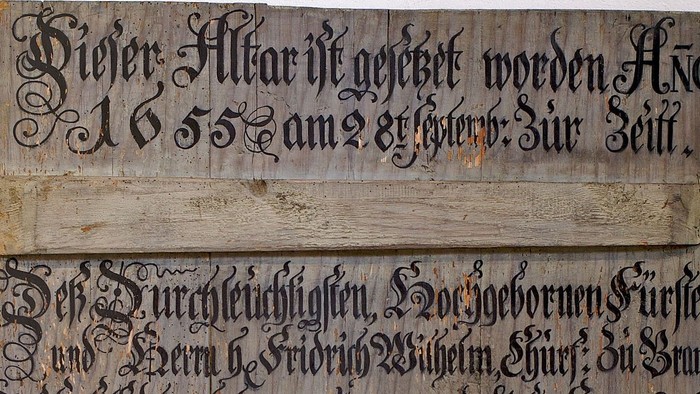 Dieser Altar ist gesetzet worden Año
1655 am 28t. septemb: Zur Zeitt.
Deß Durchleuchtigsten, Hochgebornen Fürste
und Herrn h. Fridrich Wilhelm, Chürf: Zu Bran